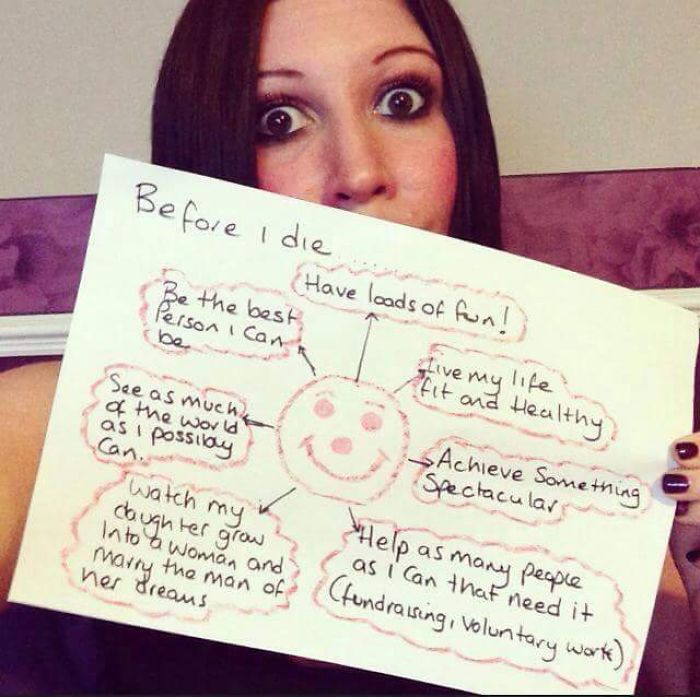 Before I die......
Have loads of fun!
Be the best
Person I Can
be
Live my life
fit and Healthy
See as much
of the world
as I possibly
Can.
Achieve Something
Spectacular
Watch my
daughter grow
Into a woman and
marry the man of
her dreams
Help as many people
as I can that need it
(fundraising, voluntary work)